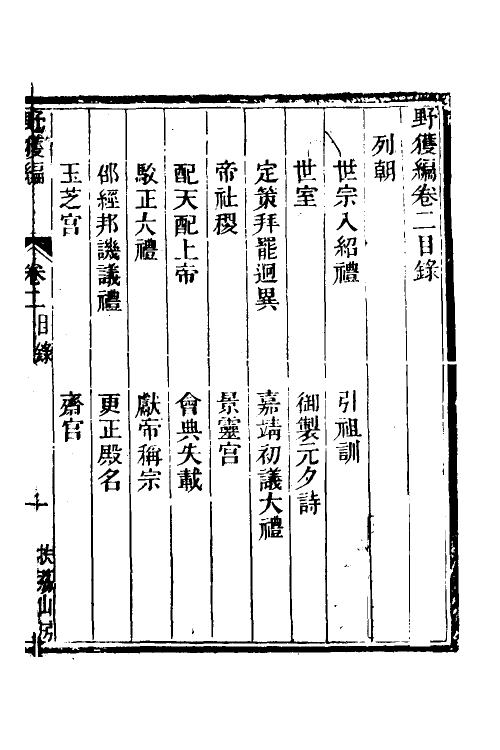 野獲編卷二目錄
列朝
世宗入紹禮　引祖訓
世室　御製元夕詩
定策拜罷迥異　嘉靖初議大禮
帝社稷　景靈宮
配天配上帝　會典失載
駁正大禮　獻帝稱宗
邵經邦譏議禮　更正殿名
玉芝宮　齋宮
野獲編　卷二目錄　一　扶荔山房